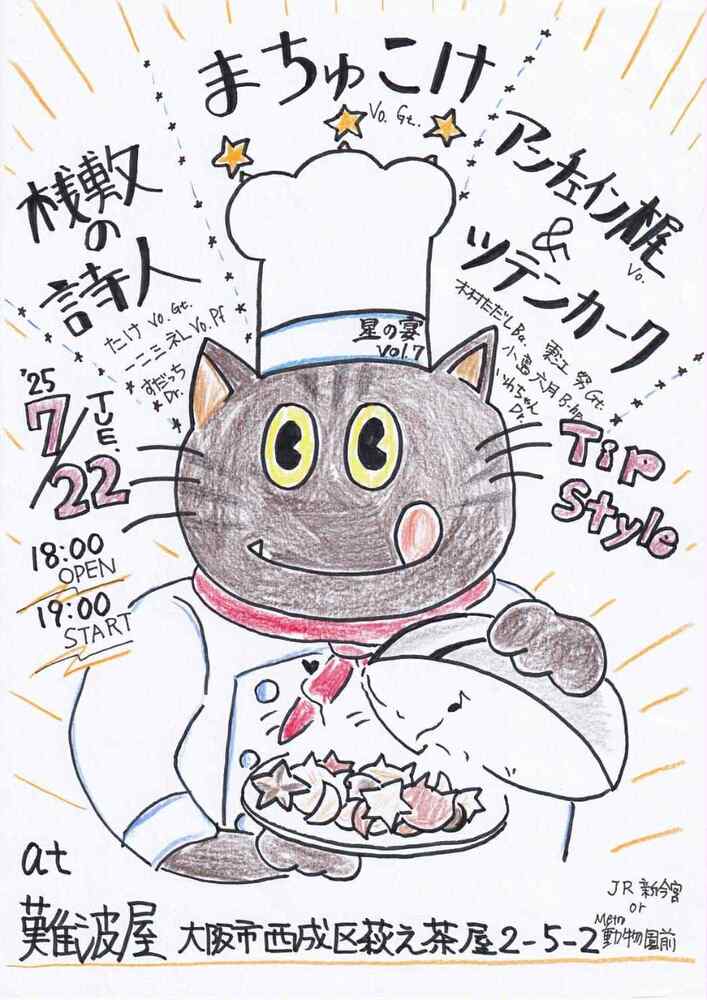 まちゅこけ
Vo. Gt..
桟敷の
詩人
たけ Vo. Gt.
すだっち
Dr.
アンチェイン梶
Vo.
&
ツテンカーク
木村ただし Ba.
小島 六月 B.hp
いわちゃん
Dr.
星の宴
Vol.7
'25
7/22
TUE.
18:00
OPEN
19:00
START
Tip
Style
at
難波屋 大阪市西成区萩之茶屋2-5-2
JR 新今宮
or
Metro
動物園前